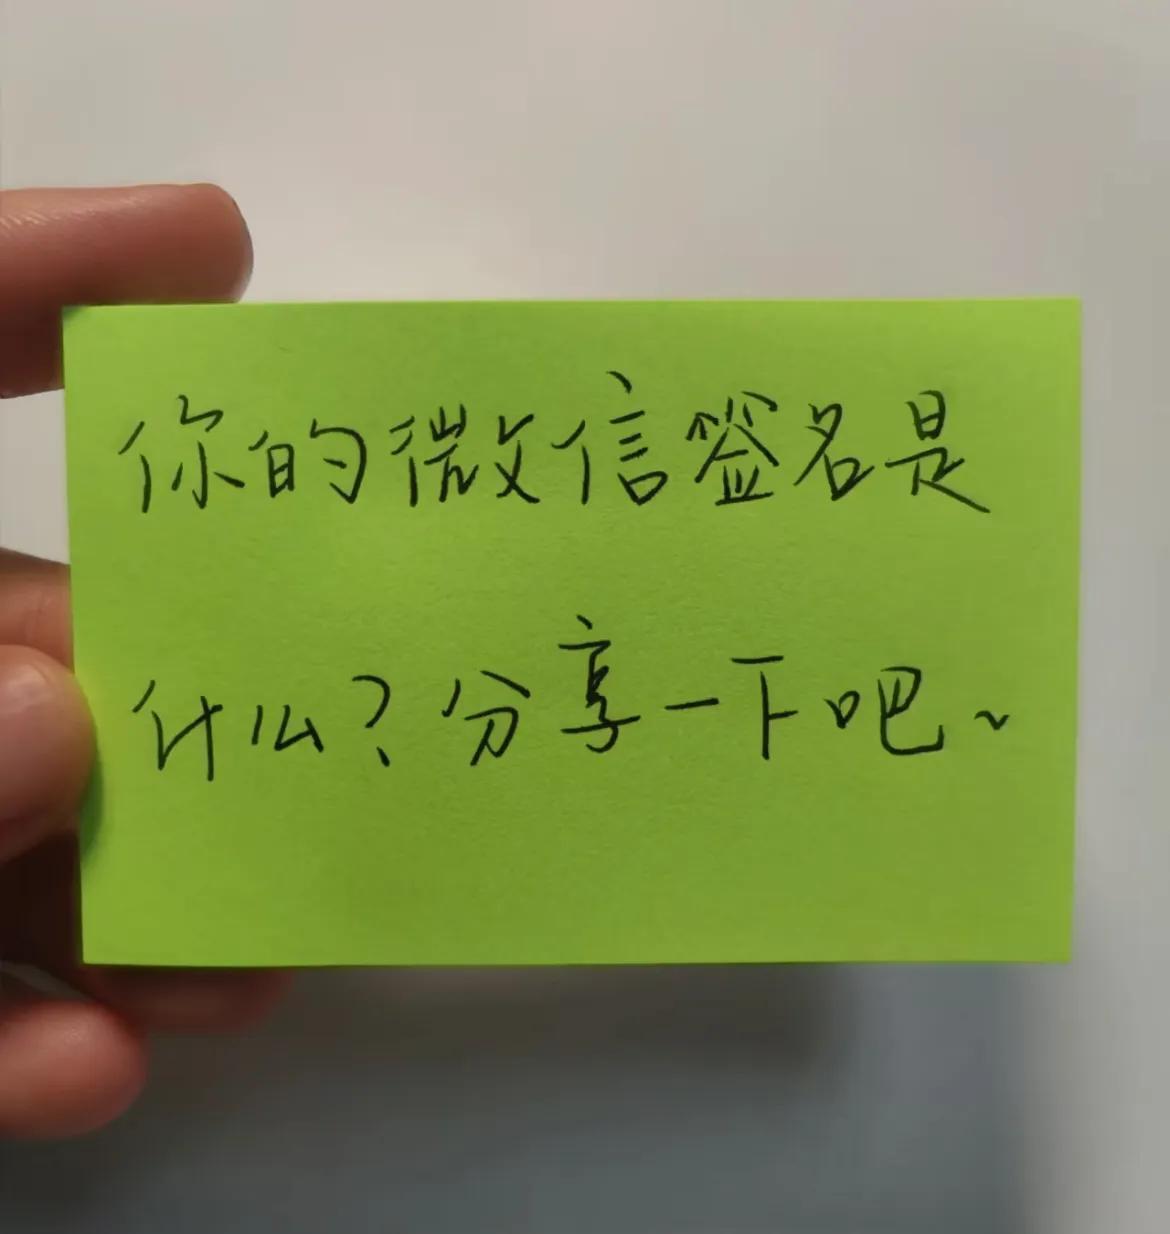 你的微信签名是
什么？分享一下吧~